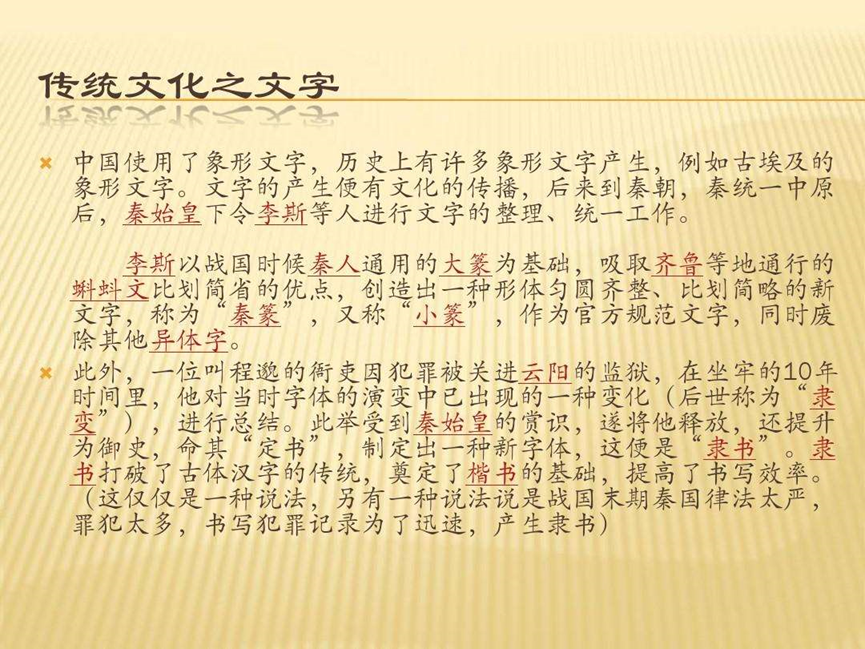 传统文化之文字
中国使用了象形文字，历史上有许多象形文字产生，例如古埃及的
象形文字。文字的产生便有文化的传播，后来到秦朝，秦统一中原
后，秦始皇下令李斯等人进行文字的整理、统一工作。
李斯以战国时候秦人通用的大篆为基础，吸取齐鲁等地通行的
蝌蚪文比划简省的优点，创造出一种形体匀圆齐整、比划简略的新
文字，称为“秦篆”，又称“小篆”，作为官方规范文字，同时废
除其他异体字。
此外，一位叫程邈的衙吏因犯罪被关进云阳的监狱，在坐牢的10年
时间里，他对当时字体的演变中已出现的一种变化（后世称为“隶
变”），进行总结。此举受到秦始皇的赏识，遂将他释放，还提升
为御史，命其“定书”，制定出一种新字体，这便是“隶书”。隶
书打破了古体汉字的传统，奠定了楷书的基础，提高了书写效率。
（这仅仅是一种说法，另有一种说法说是战国末期秦国律法太严，
罪犯太多，书写犯罪记录为了迅速，产生隶书）